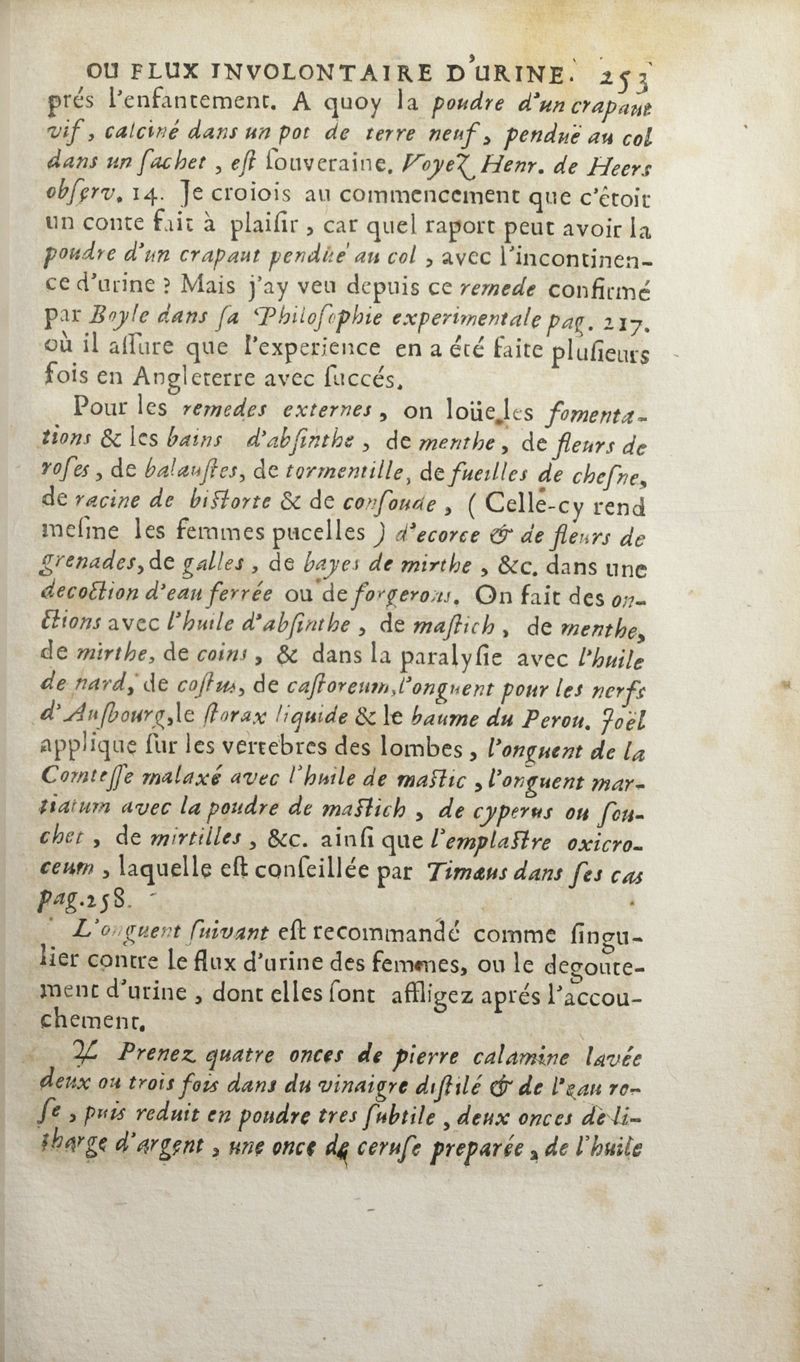 OU FLUX INVOLONTAIRE D'URINE. 253
prés l'enfantement. A quoy la poudre d'un crapaut
vif, calciné dans un pot de terre neuf, penduë au col
dans un ſachet, eſt ſouveraine. Voyez Henr. de Heers
obſerv. 14. Je croiois au commencement que c'étoit
un conte fait à plaiſir, car quel raport peut avoir la
poudre d'un crapaut penduë au col, avec l'incontinen-
ce d'urine ? Mais j'ay veu depuis ce remede confirmé
par Boyle dans ſa Philoſophie experimentale pag. 217.
où il aſſure que l'experience en a été faite pluſieurs
fois en Angleterre avec ſuccés.
Pour les remedes externes, on loüe les fomenta-
tions & les bains d'abſinthe, de menthe, de fleurs de
roſes, de balauſtes, de tormentille, de fueilles de cheſne,
de racine de biſtorte & de conſoude, ( Celle-cy rend
meſme les femmes pucelles ) d'ecorce & de fleurs de
grenades, de galles, de bayes de mirthe, &c. dans une
decoction d'eau ferrée ou de forgerons. On fait des on-
ctions avec l'huile d'abſinthe, de maſtich, de menthe,
de mirthe, de coins, & dans la paralyſie avec l'huile
de nard, de coſtus, de caſtoreum, l'onguent pour les nerfs
d'Auſbourg, le ſtorax liquide & le baume du Perou. Joël
applique ſur les vertebres des lombes, l'onguent de la
Comteſſe malaxé avec l'huile de maſtic, l'onguent mar-
tiatum avec la poudre de maſtich, de cyperus ou ſou-
chet, de mirtilles, &c. ainſi que l'emplaſtre oxicro-
ceum, laquelle eſt conſeillée par Timæus dans ſes cas
pag. 258.
L'onguent ſuivant eſt recommandé comme ſingu-
lier contre le flux d'urine des femmes, ou le degoute-
ment d'urine, dont elles ſont affligez aprés l'accou-
chement.
♃ Prenez quatre onces de pierre calamine lavée
deux ou trois fois dans du vinaigre diſtilé & de l'eau ro-
ſe, puis reduit en poudre tres ſubtile, deux onces de li-
tharge d'argent, une once de ceruſe preparée, de l'huile